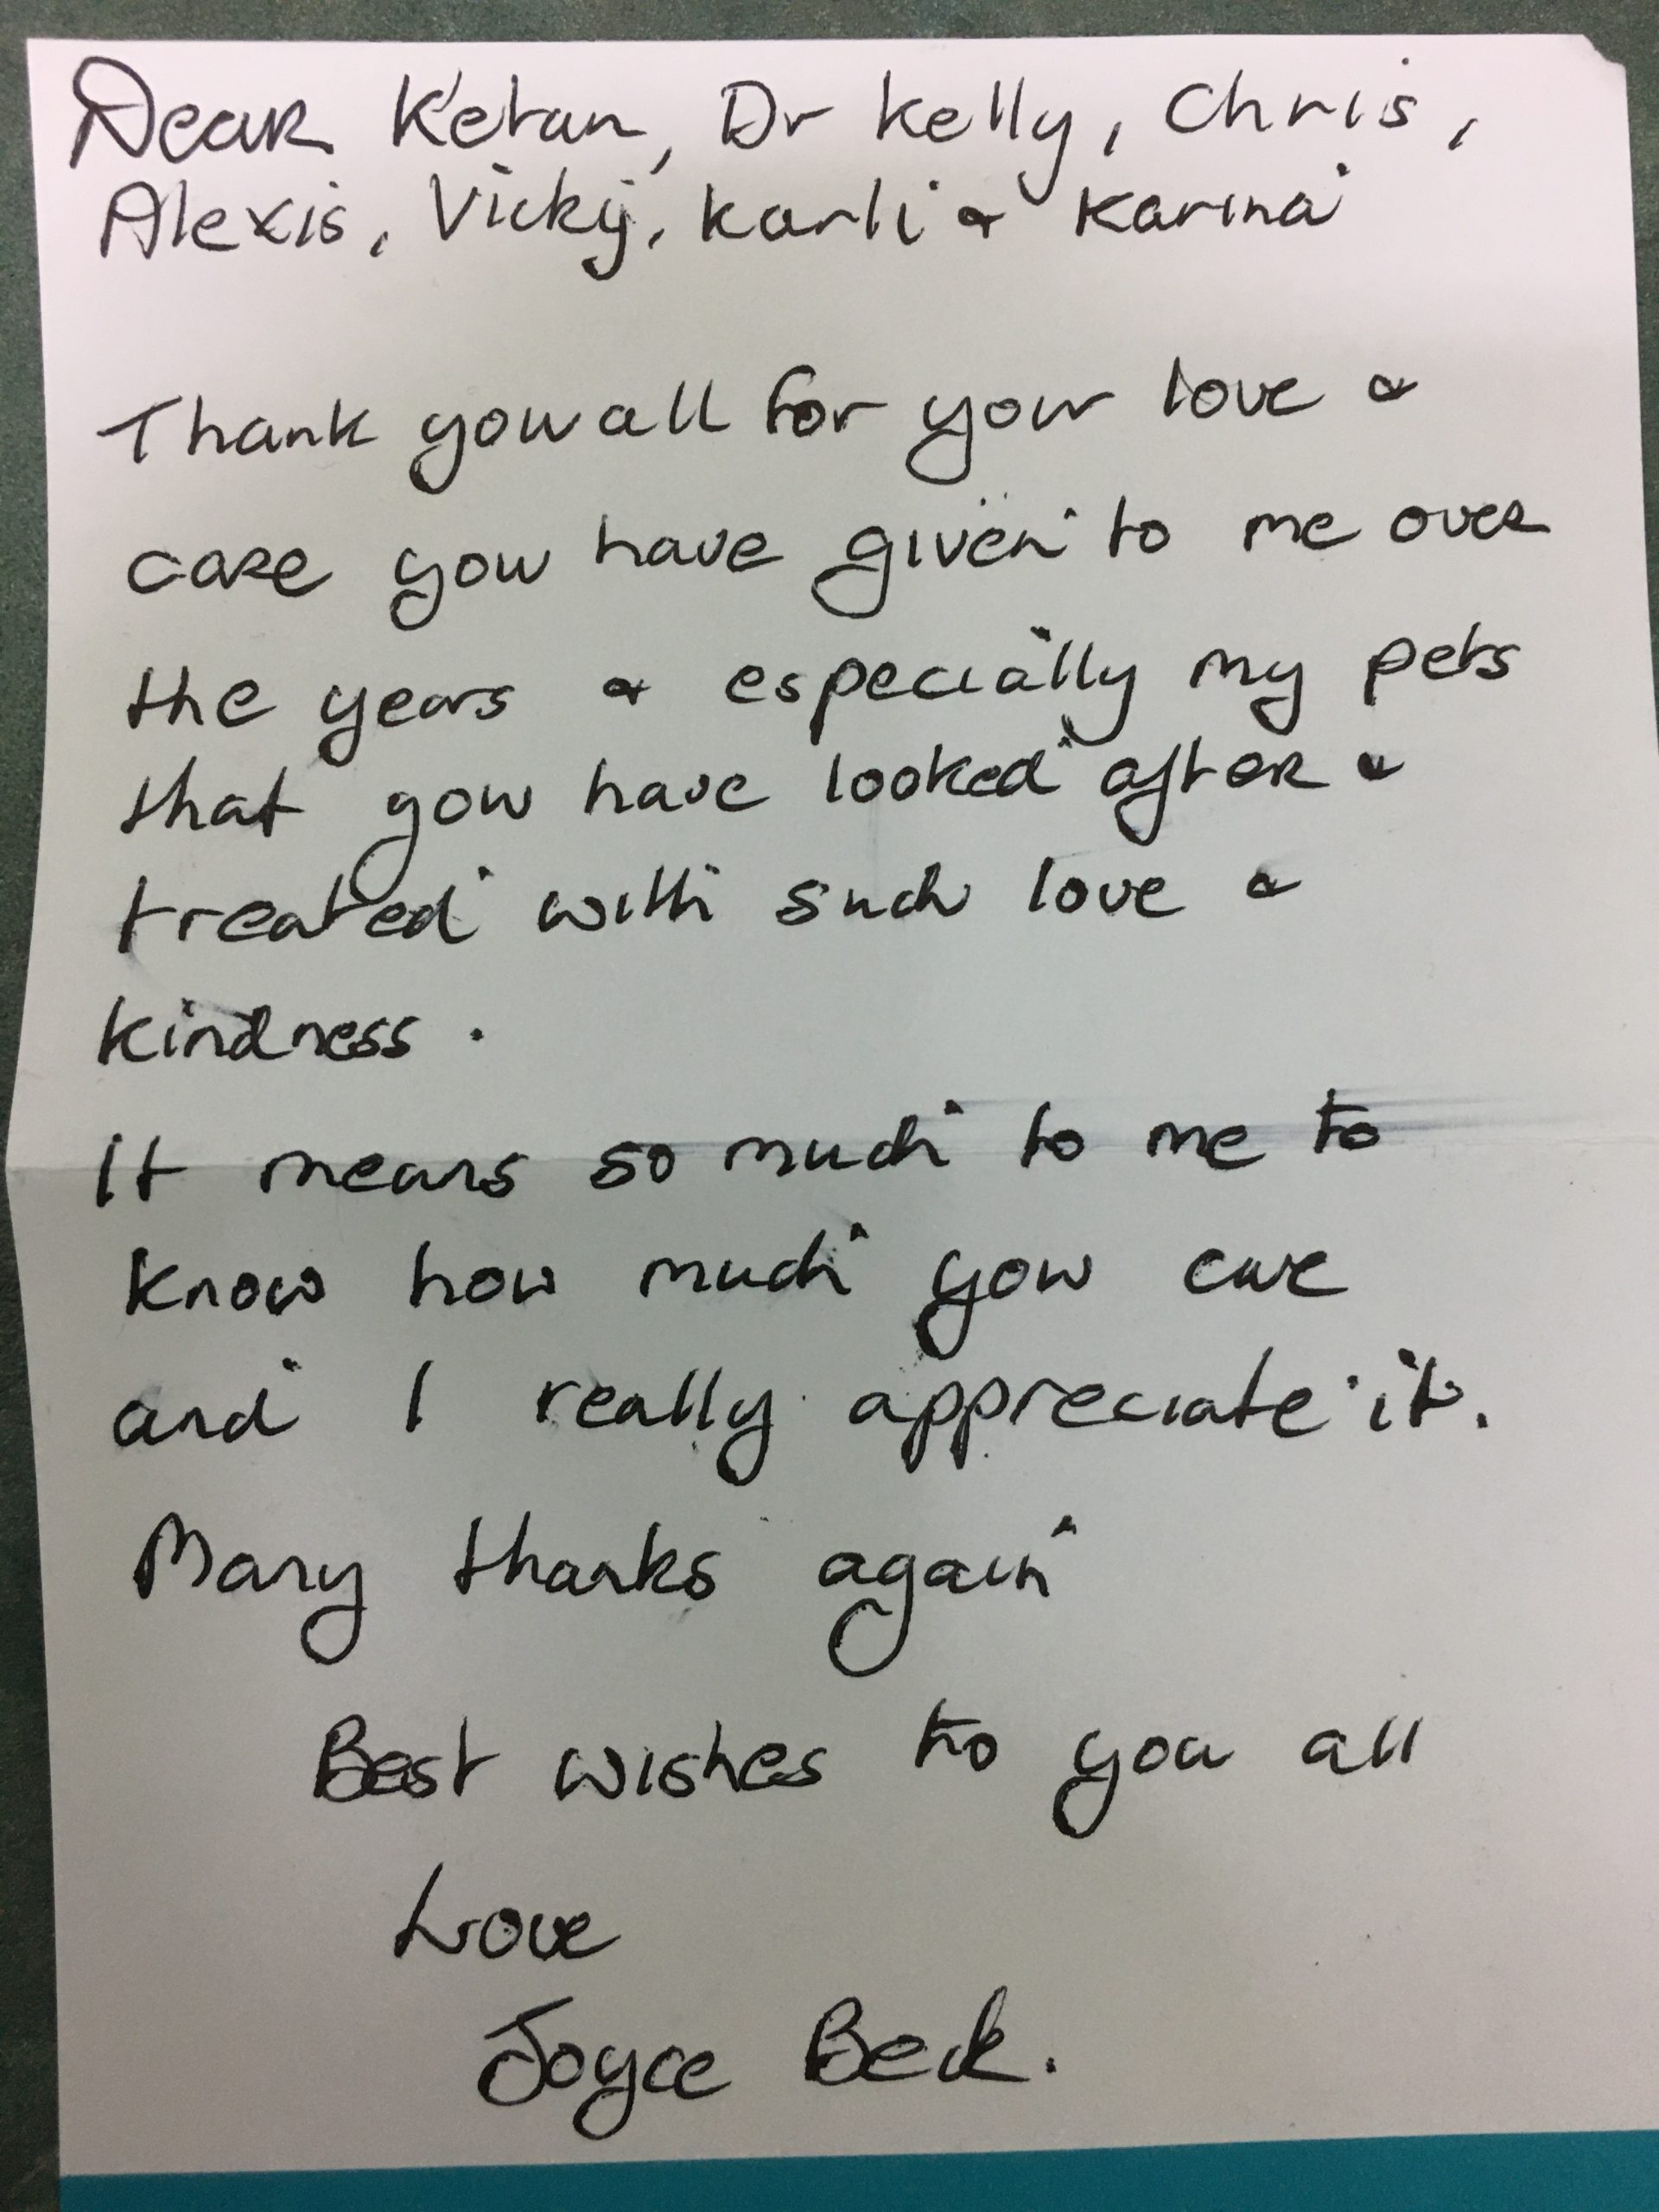 Dear Ketan, Dr Kelly, Chris,
Alexis, Vicky, Karli & Karina
Thank you all for your love &
care you have given to me over
the years & especially my pets
that you have looked after &
treated with such love &
kindness.
It means so much to me to
know how much you care
and I really appreciate it.
Many thanks again
Best wishes to you all
Love
Joyce Beck.